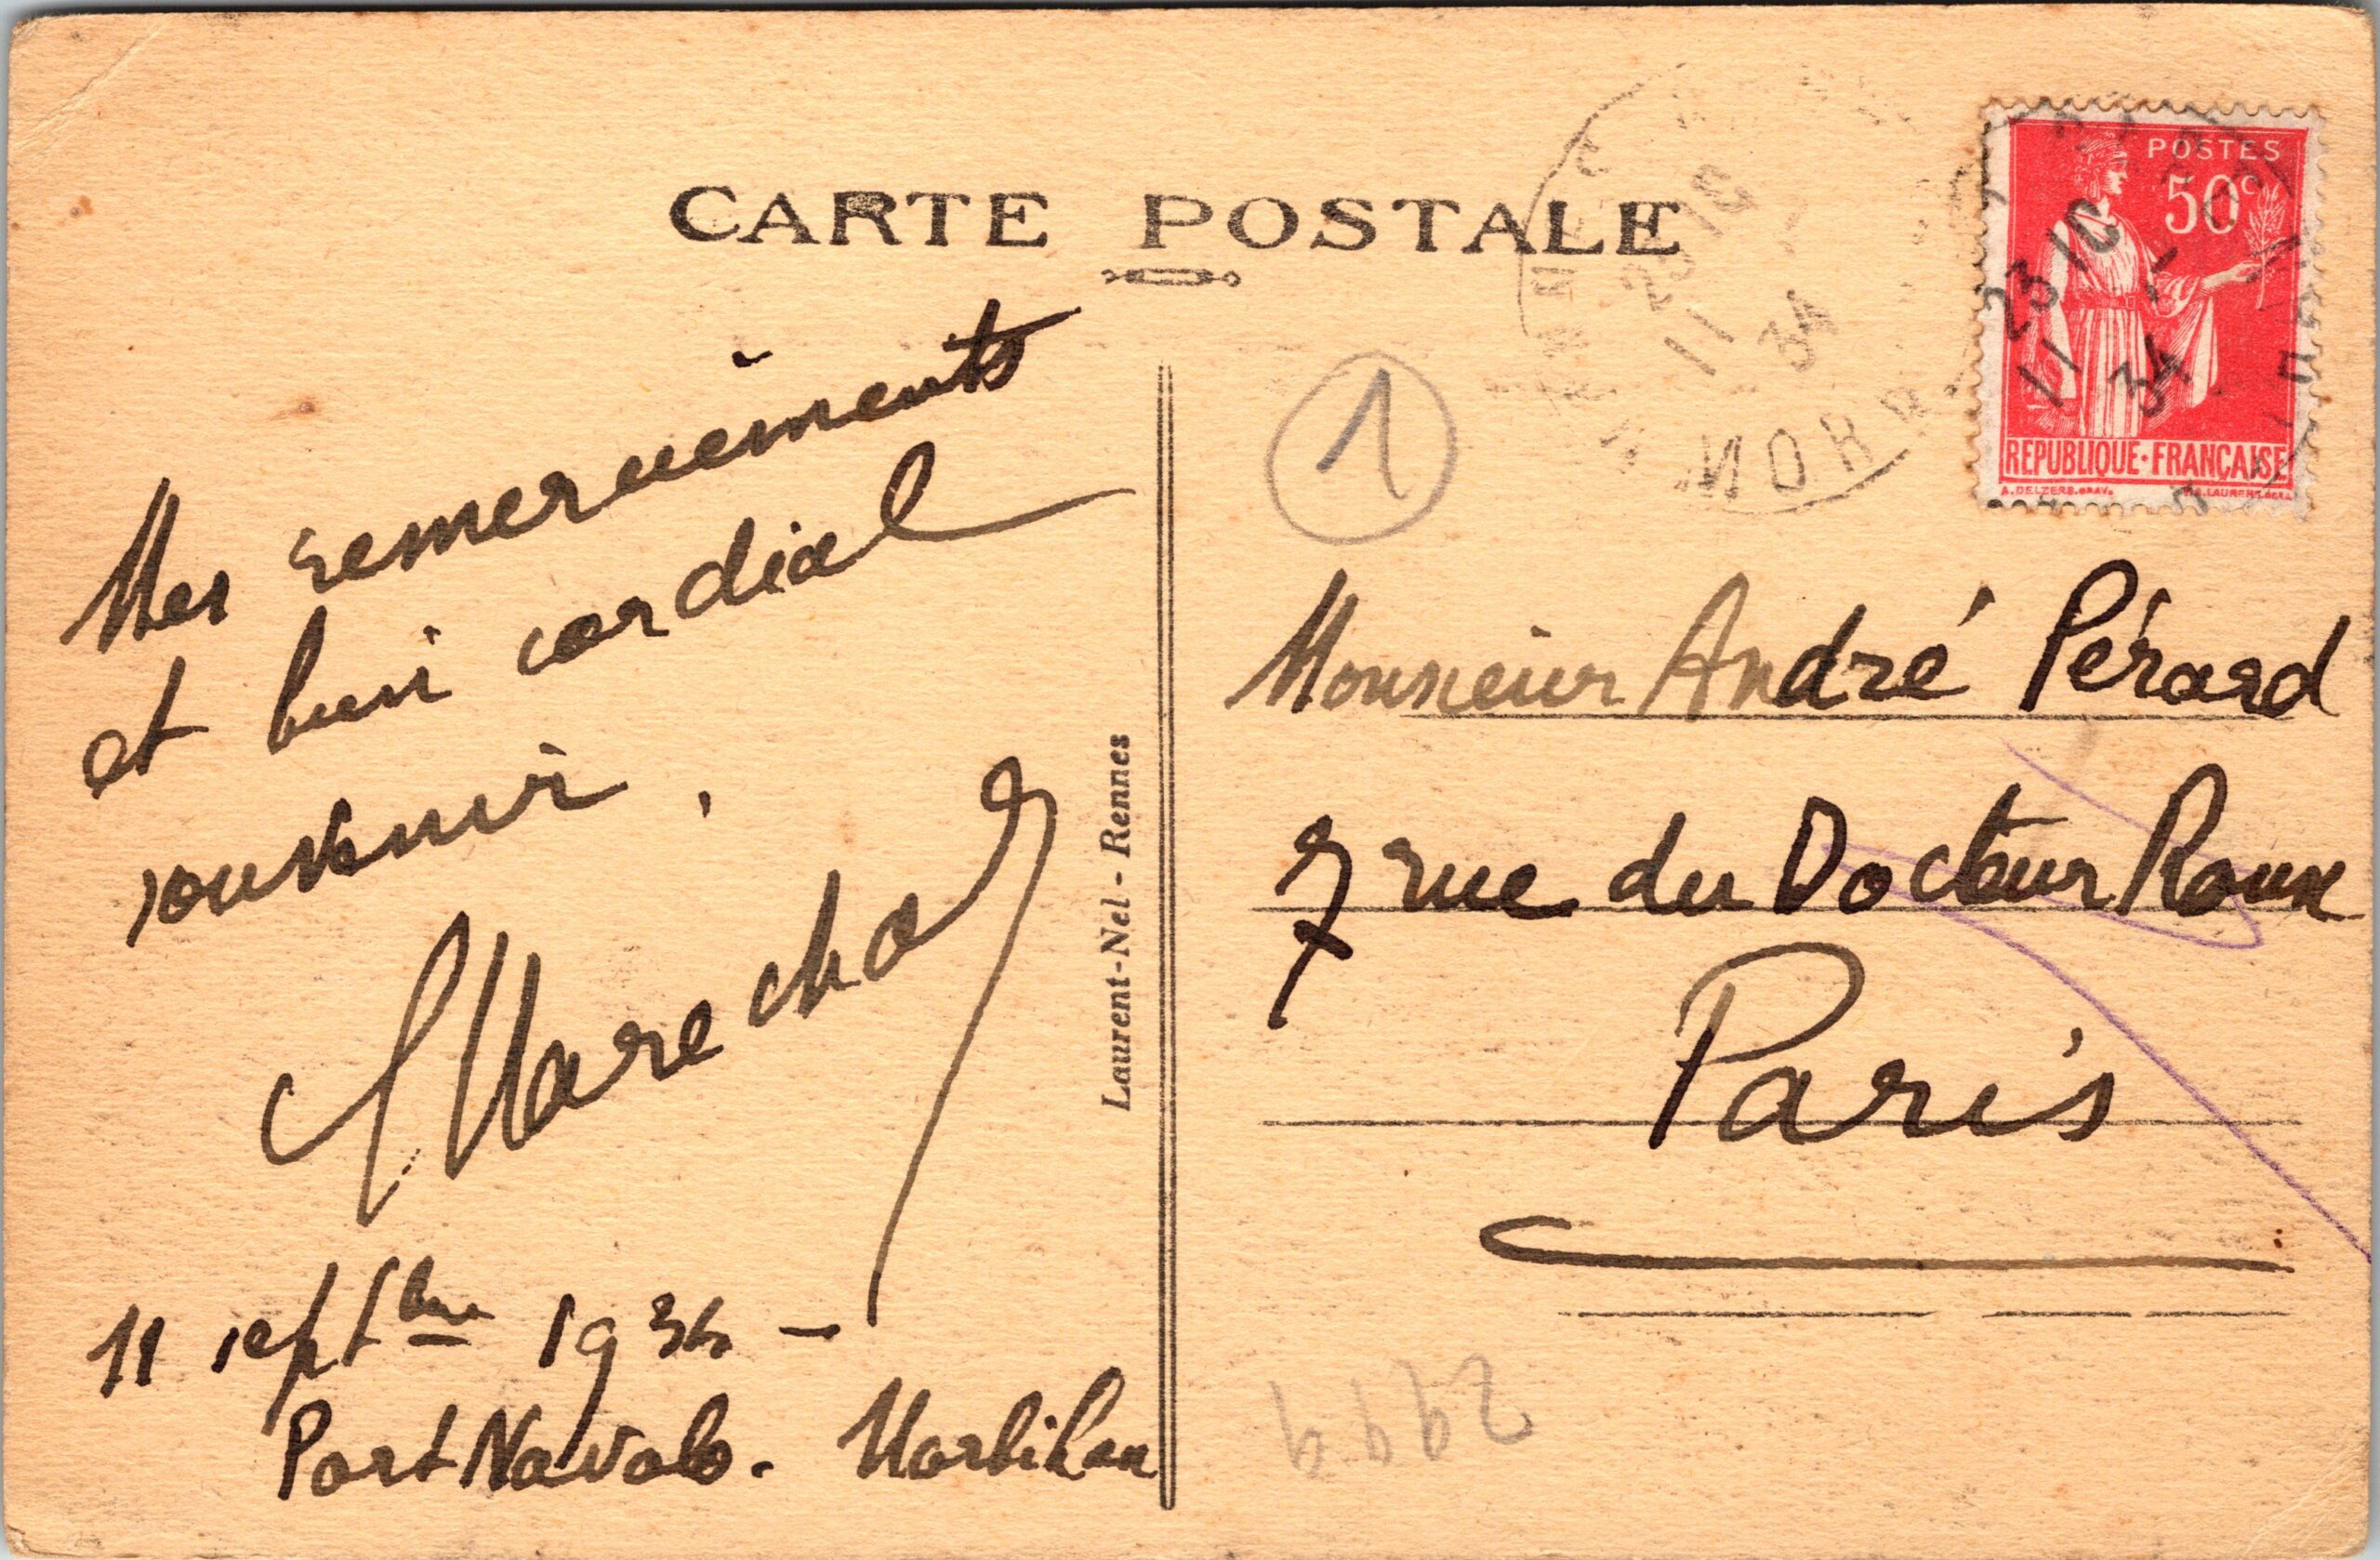 CARTE POSTALE
POSTES
50c
REPUBLIQUE·FRANÇAISE
23 10
11 - 34
MORB
1
Mes remerciements
et bien cordial
souvenir.
Marechal
11 septbre 1934 -
Port Navalo. Morbihan
Laurent-Nel - Rennes
Monsieur André Pérard
7 rue du Docteur Roux
Paris